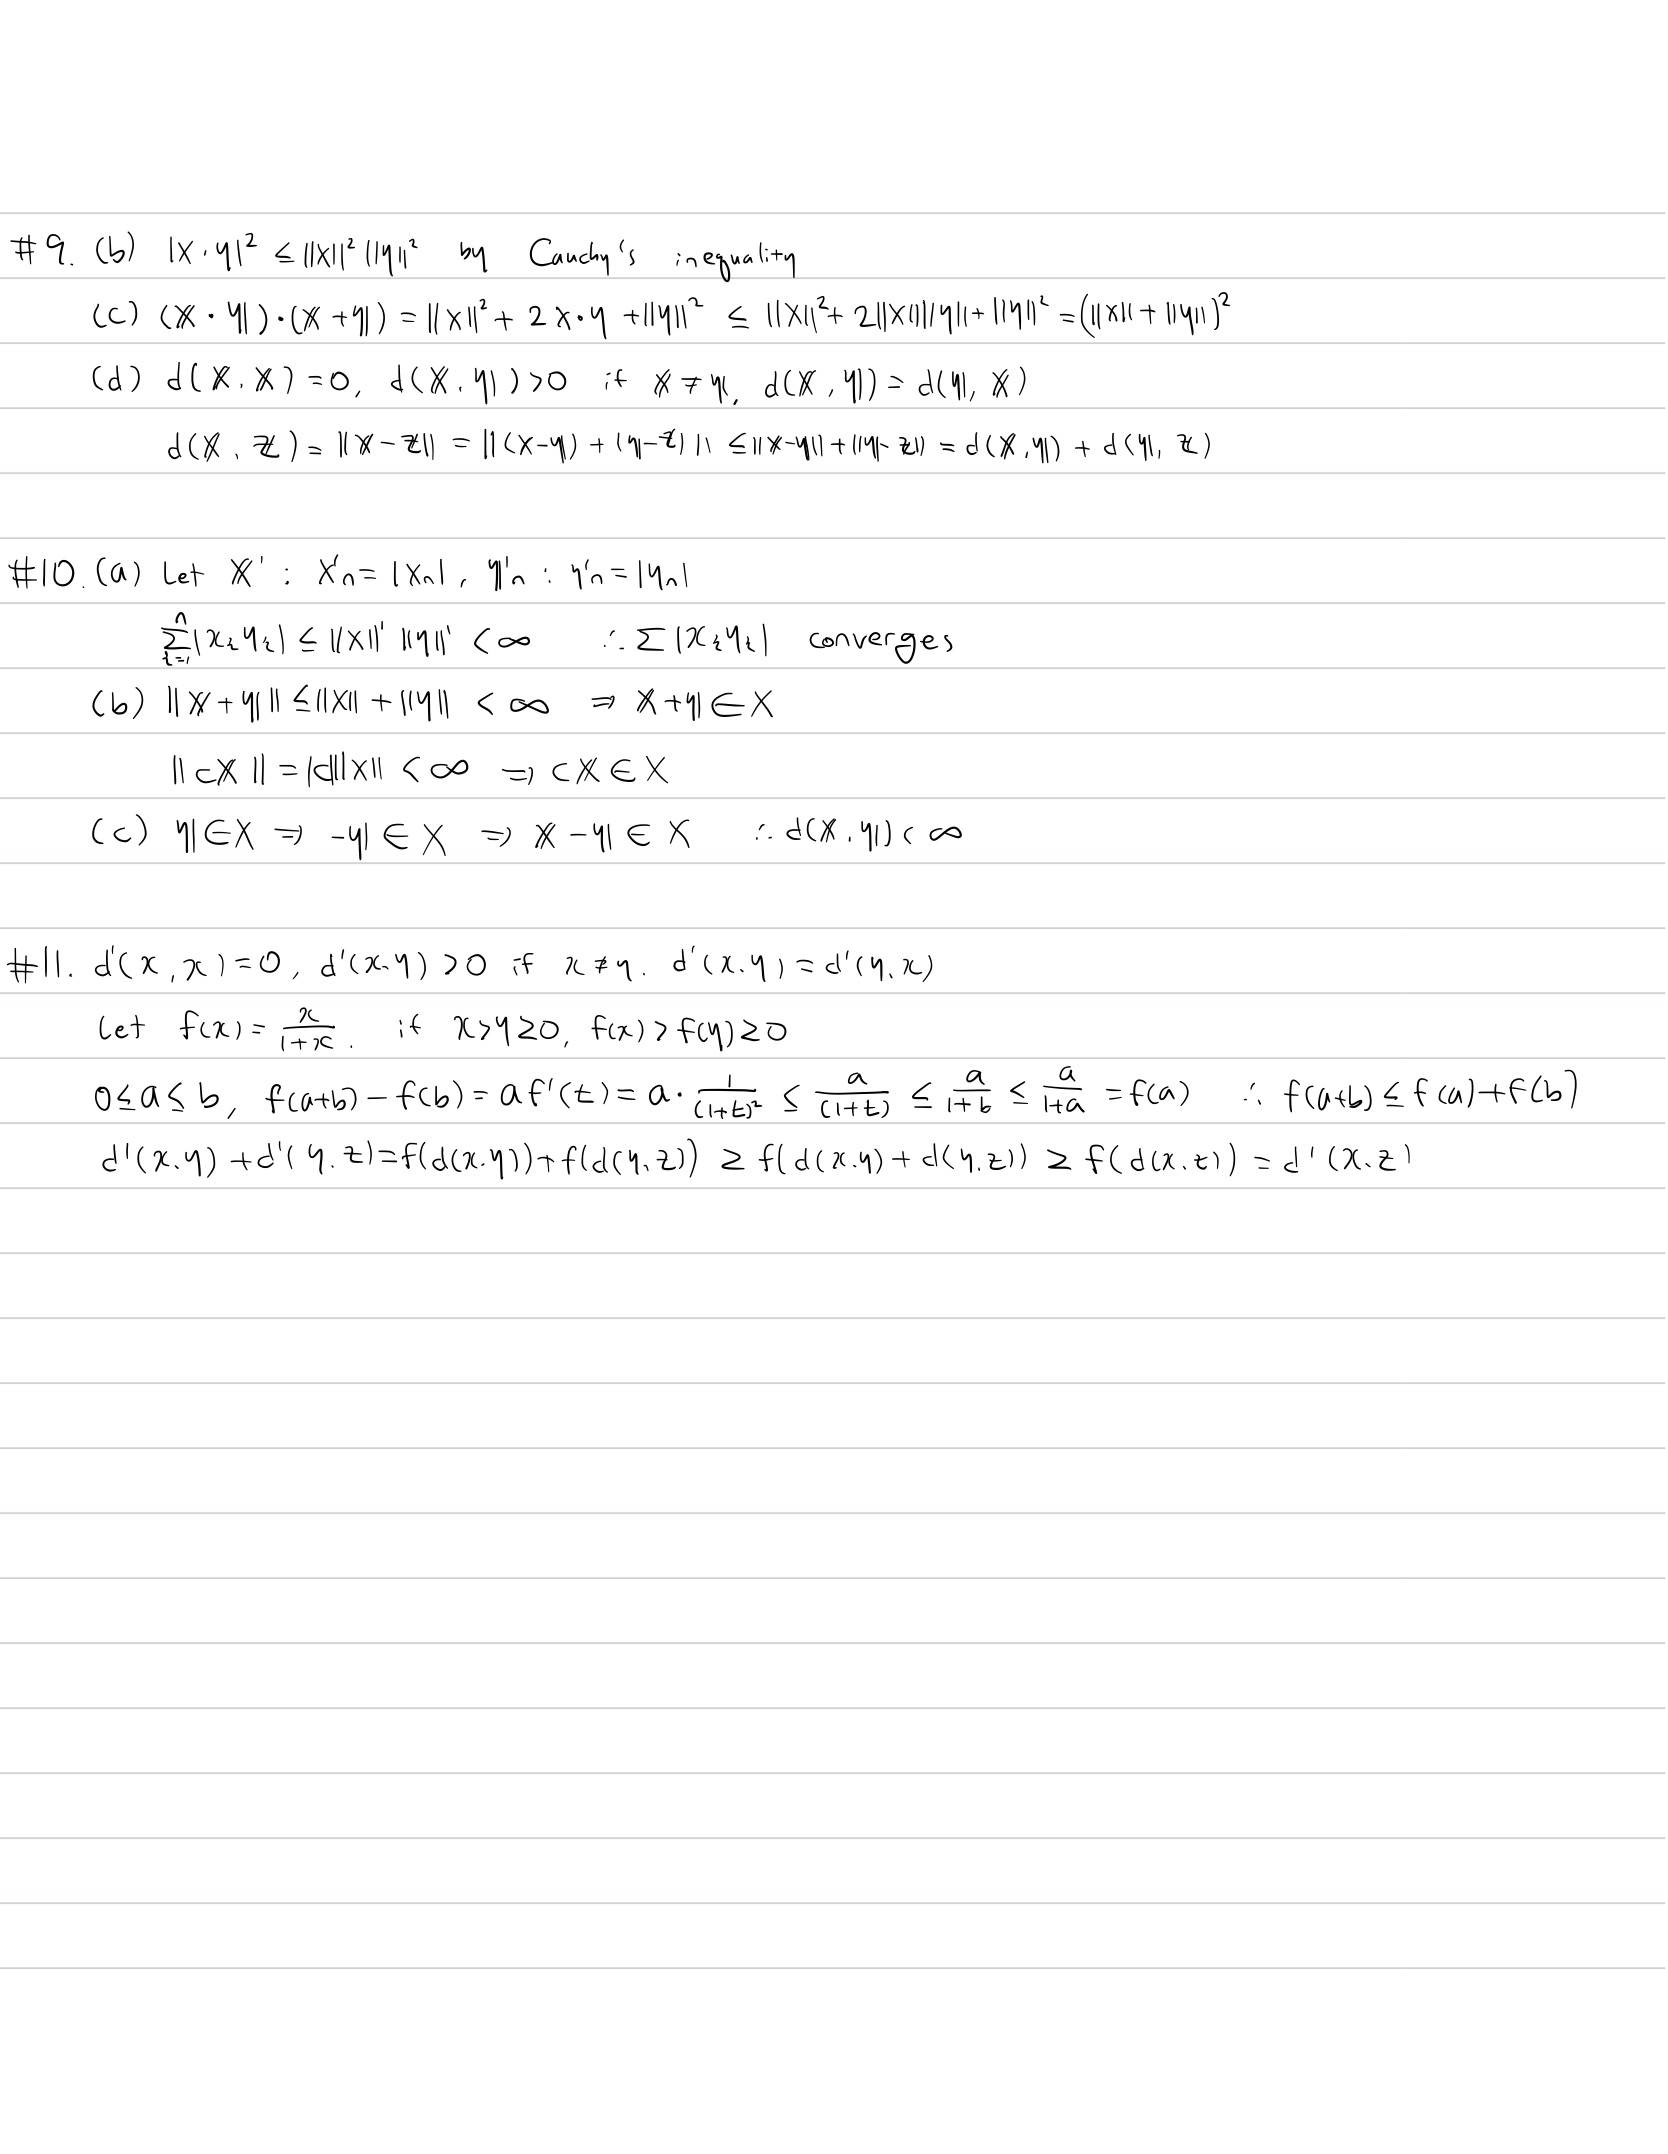 #9. (b) |𝕏·𝕪|² ≤ ||𝕏||² ||𝕪||² by Cauchy's inequality
(c) (𝕏·𝕪)·(𝕏+𝕪) = ||𝕏||² + 2𝕏·𝕪 + ||𝕪||² ≤ ||𝕏||² + 2||𝕏||||𝕪|| + ||𝕪||² = (||𝕏|| + ||𝕪||)²
(d) d(𝕏, 𝕏) = 0, d(𝕏, 𝕪) > 0 if 𝕏 ≠ 𝕪, d(𝕏, 𝕪) = d(𝕪, 𝕏)
d(𝕏, 𝕫) = ||𝕏 - 𝕫|| = ||(𝕏-𝕪) + (𝕪-𝕫)|| ≤ ||𝕏-𝕪|| + ||𝕪-𝕫|| = d(𝕏, 𝕪) + d(𝕪, 𝕫)
#10. (a) Let 𝕏' : x'ₙ = |xₙ|, 𝕪'ₙ : y'ₙ = |yₙ|
∑ᵢ₌₁ⁿ |xᵢyᵢ| ≤ ||𝕏||' ||𝕪||' < ∞ ∴ ∑|xᵢyᵢ| converges
(b) ||𝕏+𝕪|| ≤ ||𝕏|| + ||𝕪|| < ∞ ⇒ 𝕏+𝕪 ∈ X
||c𝕏|| = |c|||𝕏|| < ∞ ⇒ c𝕏 ∈ X
(c) 𝕪 ∈ X ⇒ -𝕪 ∈ X ⇒ 𝕏-𝕪 ∈ X ∴ d(𝕏, 𝕪) < ∞
#11. d'(x, x) = 0, d'(x, y) > 0 if x ≠ y. d'(x, y) = d'(y, x)
Let f(x) = x/(1+x). if x > y ≥ 0, f(x) > f(y) ≥ 0
0 ≤ a ≤ b, f(a+b) - f(b) = a f'(t) = a · 1/(1+t)² ≤ a/(1+t) ≤ a/(1+b) ≤ a/(1+a) = f(a) ∴ f(a+b) ≤ f(a) + f(b)
d'(x, y) + d'(y, z) = f(d(x, y)) + f(d(y, z)) ≥ f(d(x, y) + d(y, z)) ≥ f(d(x, z)) = d'(x, z)